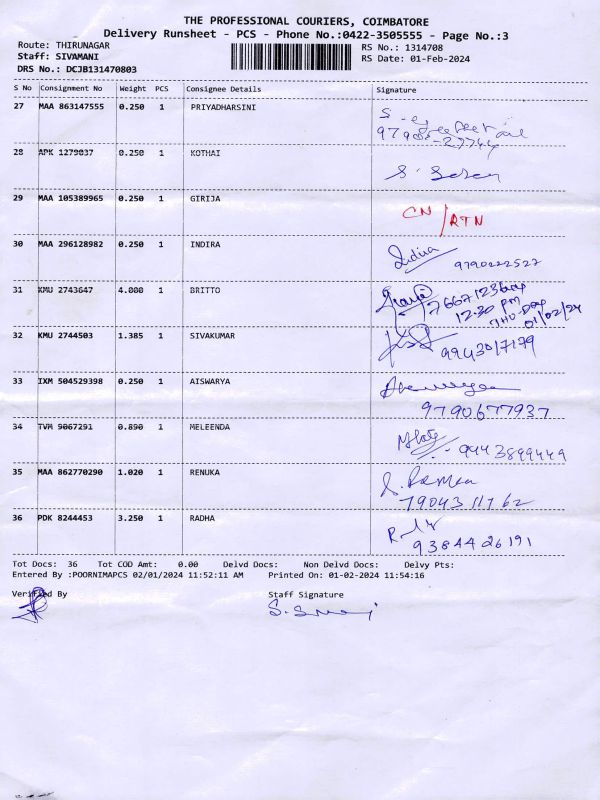 THE PROFESSIONAL COURIERS, COIMBATORE
Delivery Runsheet - PCS - Phone No.:0422-3505555 - Page No.:3
Route: THIRUNAGAR RS No.: 1314708
Staff: SIVAMANI RS Date: 01-Feb-2024
DRS No.: DCJB131470803
S No Consignment No Weight PCS Consignee Details Signature
27 MAA 863147555 0.250 1 PRIYADHARSINI
28 APK 1279037 0.250 1 KOTHAI
29 MAA 105389965 0.250 1 GIRIJA CN/RTN
30 MAA 296128982 0.250 1 INDIRA Indira
9790222527
31 KMU 2743647 4.000 1 BRITTO
12:30 pm
01/02/24
32 KMU 2744503 1.385 1 SIVAKUMAR
9943017179
33 IXM 504529398 0.250 1 AISWARYA
9790677937
34 TVM 9067291 0.890 1 MELEENDA
9443899449
35 MAA 862770290 1.020 1 RENUKA
7904311762
36 PDK 8244453 3.250 1 RADHA
9384426191
Tot Docs: 36 Tot COD Amt: 0.00 Delvd Docs: Non Delvd Docs: Delvy Pts:
Entered By :POORNIMAPCS 02/01/2024 11:52:11 AM Printed On: 01-02-2024 11:54:16
Verified By Staff Signature